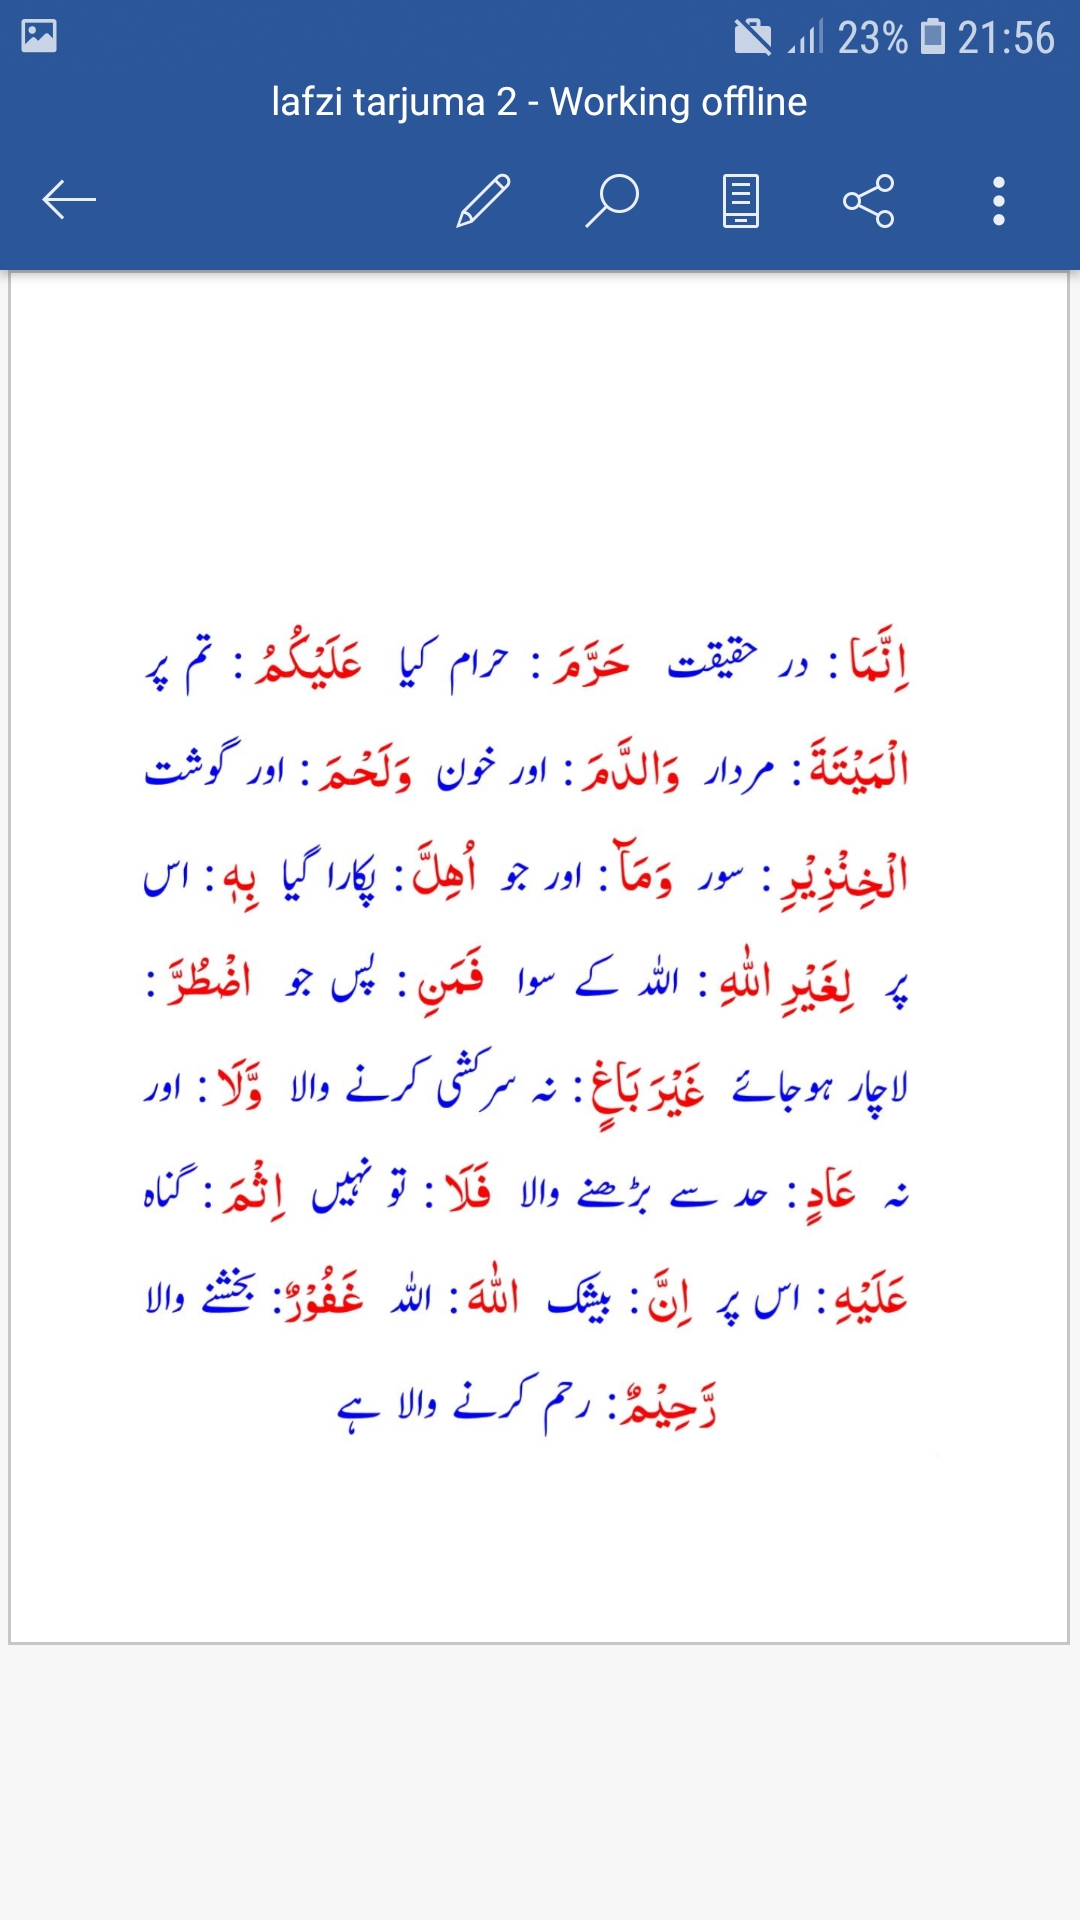 23% 21:56
lafzi tarjuma 2 - Working offline
اِنَّمَا : در حقیقت حَرَّمَ : حرام کیا عَلَيْكُمُ : تم پر
الْمَيْتَةَ : مردار وَالدَّمَ : اور خون وَلَحْمَ : اور گوشت
الْخِنْزِيْرِ : سور وَمَآ : اور جو اُهِلَّ : پکارا گیا بِهٖ : اس
پر لِغَيْرِ اللّٰهِ : اللہ کے سوا فَمَنِ : پس جو اضْطُرَّ :
لاچار ہوجائے غَيْرَ بَاغٍ : نہ سرکشی کرنے والا وَّلَا : اور
نہ عَادٍ : حد سے بڑھنے والا فَلَا : تو نہیں اِثْمَ : گناہ
عَلَيْهِ : اس پر اِنَّ : بیشک اللّٰهَ : اللہ غَفُوْرٌ : بخشنے والا
رَّحِيْمٌ : رحم کرنے والا ہے